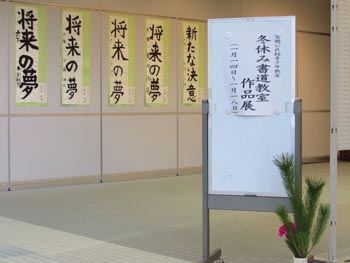 将来の夢
将来の夢
将来の夢
将来の夢
新たな決意
冬休み書道教室
作品展
一月一四日～一月一八日